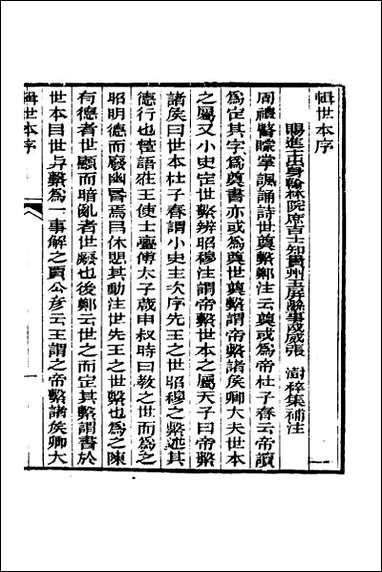 輯世本序
賜進士出身翰林院庶吉士知貴州玉屏縣事武威張澍稡集補注
周禮瞽矇掌諷誦詩世奠繫鄭注云奠或爲帝杜子春云帝讀
爲定其字爲奠書亦或爲奠世奠繫謂帝繫諸矦卿大夫世本
之屬又小史定世繫辨昭穆注謂帝繫世本之屬天子曰帝繫
諸矦曰世本杜子春謂小史主次序先王之世昭穆之繫述其
德行也楚語莊王使士亹傅太子葴申叔時曰教之世而爲之
昭明德而廢幽昬焉目休思其動注世先王之世繫也爲之陳
有德者世顯而暗亂者世廢也後鄭云世之而定其繫謂書於
世本目世与繫爲一事解之賈公彦云王謂之帝繫諸矦卿大
輯世本序
一